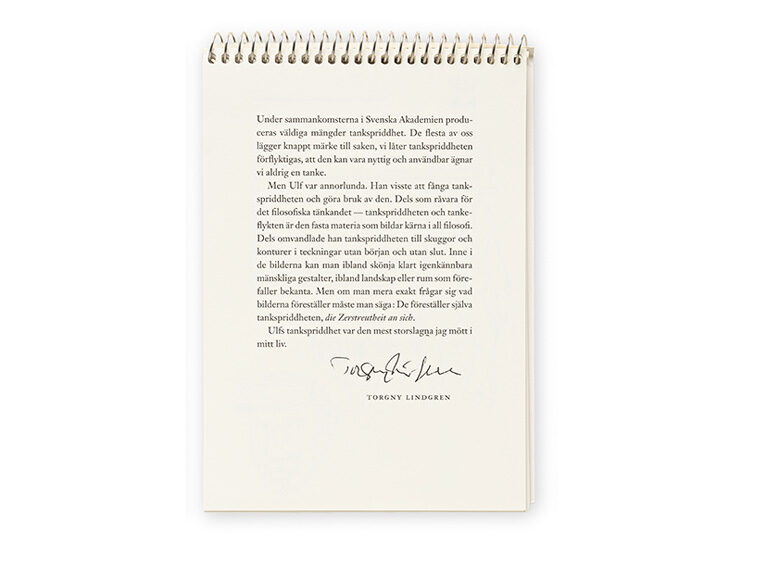 Under sammankomsterna i Svenska Akademien produ-
ceras väldiga mängder tankspriddhet. De flesta av oss
lägger knappt märke till saken, vi låter tankspriddheten
förflyktigas, att den kan vara nyttig och användbar ägnar
vi aldrig en tanke.
Men Ulf var annorlunda. Han visste att fånga tank-
spriddheten och göra bruk av den. Dels som råvara för
det filosofiska tänkandet — tankspriddheten och tanke-
flykten är den fasta materia som bildar kärna i all filosofi.
Dels omvandlade han tankspriddheten till skuggor och
konturer i teckningar utan början och utan slut. Inne i
de bilderna kan man ibland skönja klart igenkännbara
mänskliga gestalter, ibland landskap eller rum som före-
faller bekanta. Men om man mera exakt frågar sig vad
bilderna föreställer måste man säga: De föreställer själva
tankspriddheten, die Zerstreutheit an sich.
Ulfs tankspriddhet var den mest storslagna jag mött i
mitt liv.
Torgny Lindgren
TORGNY LINDGREN